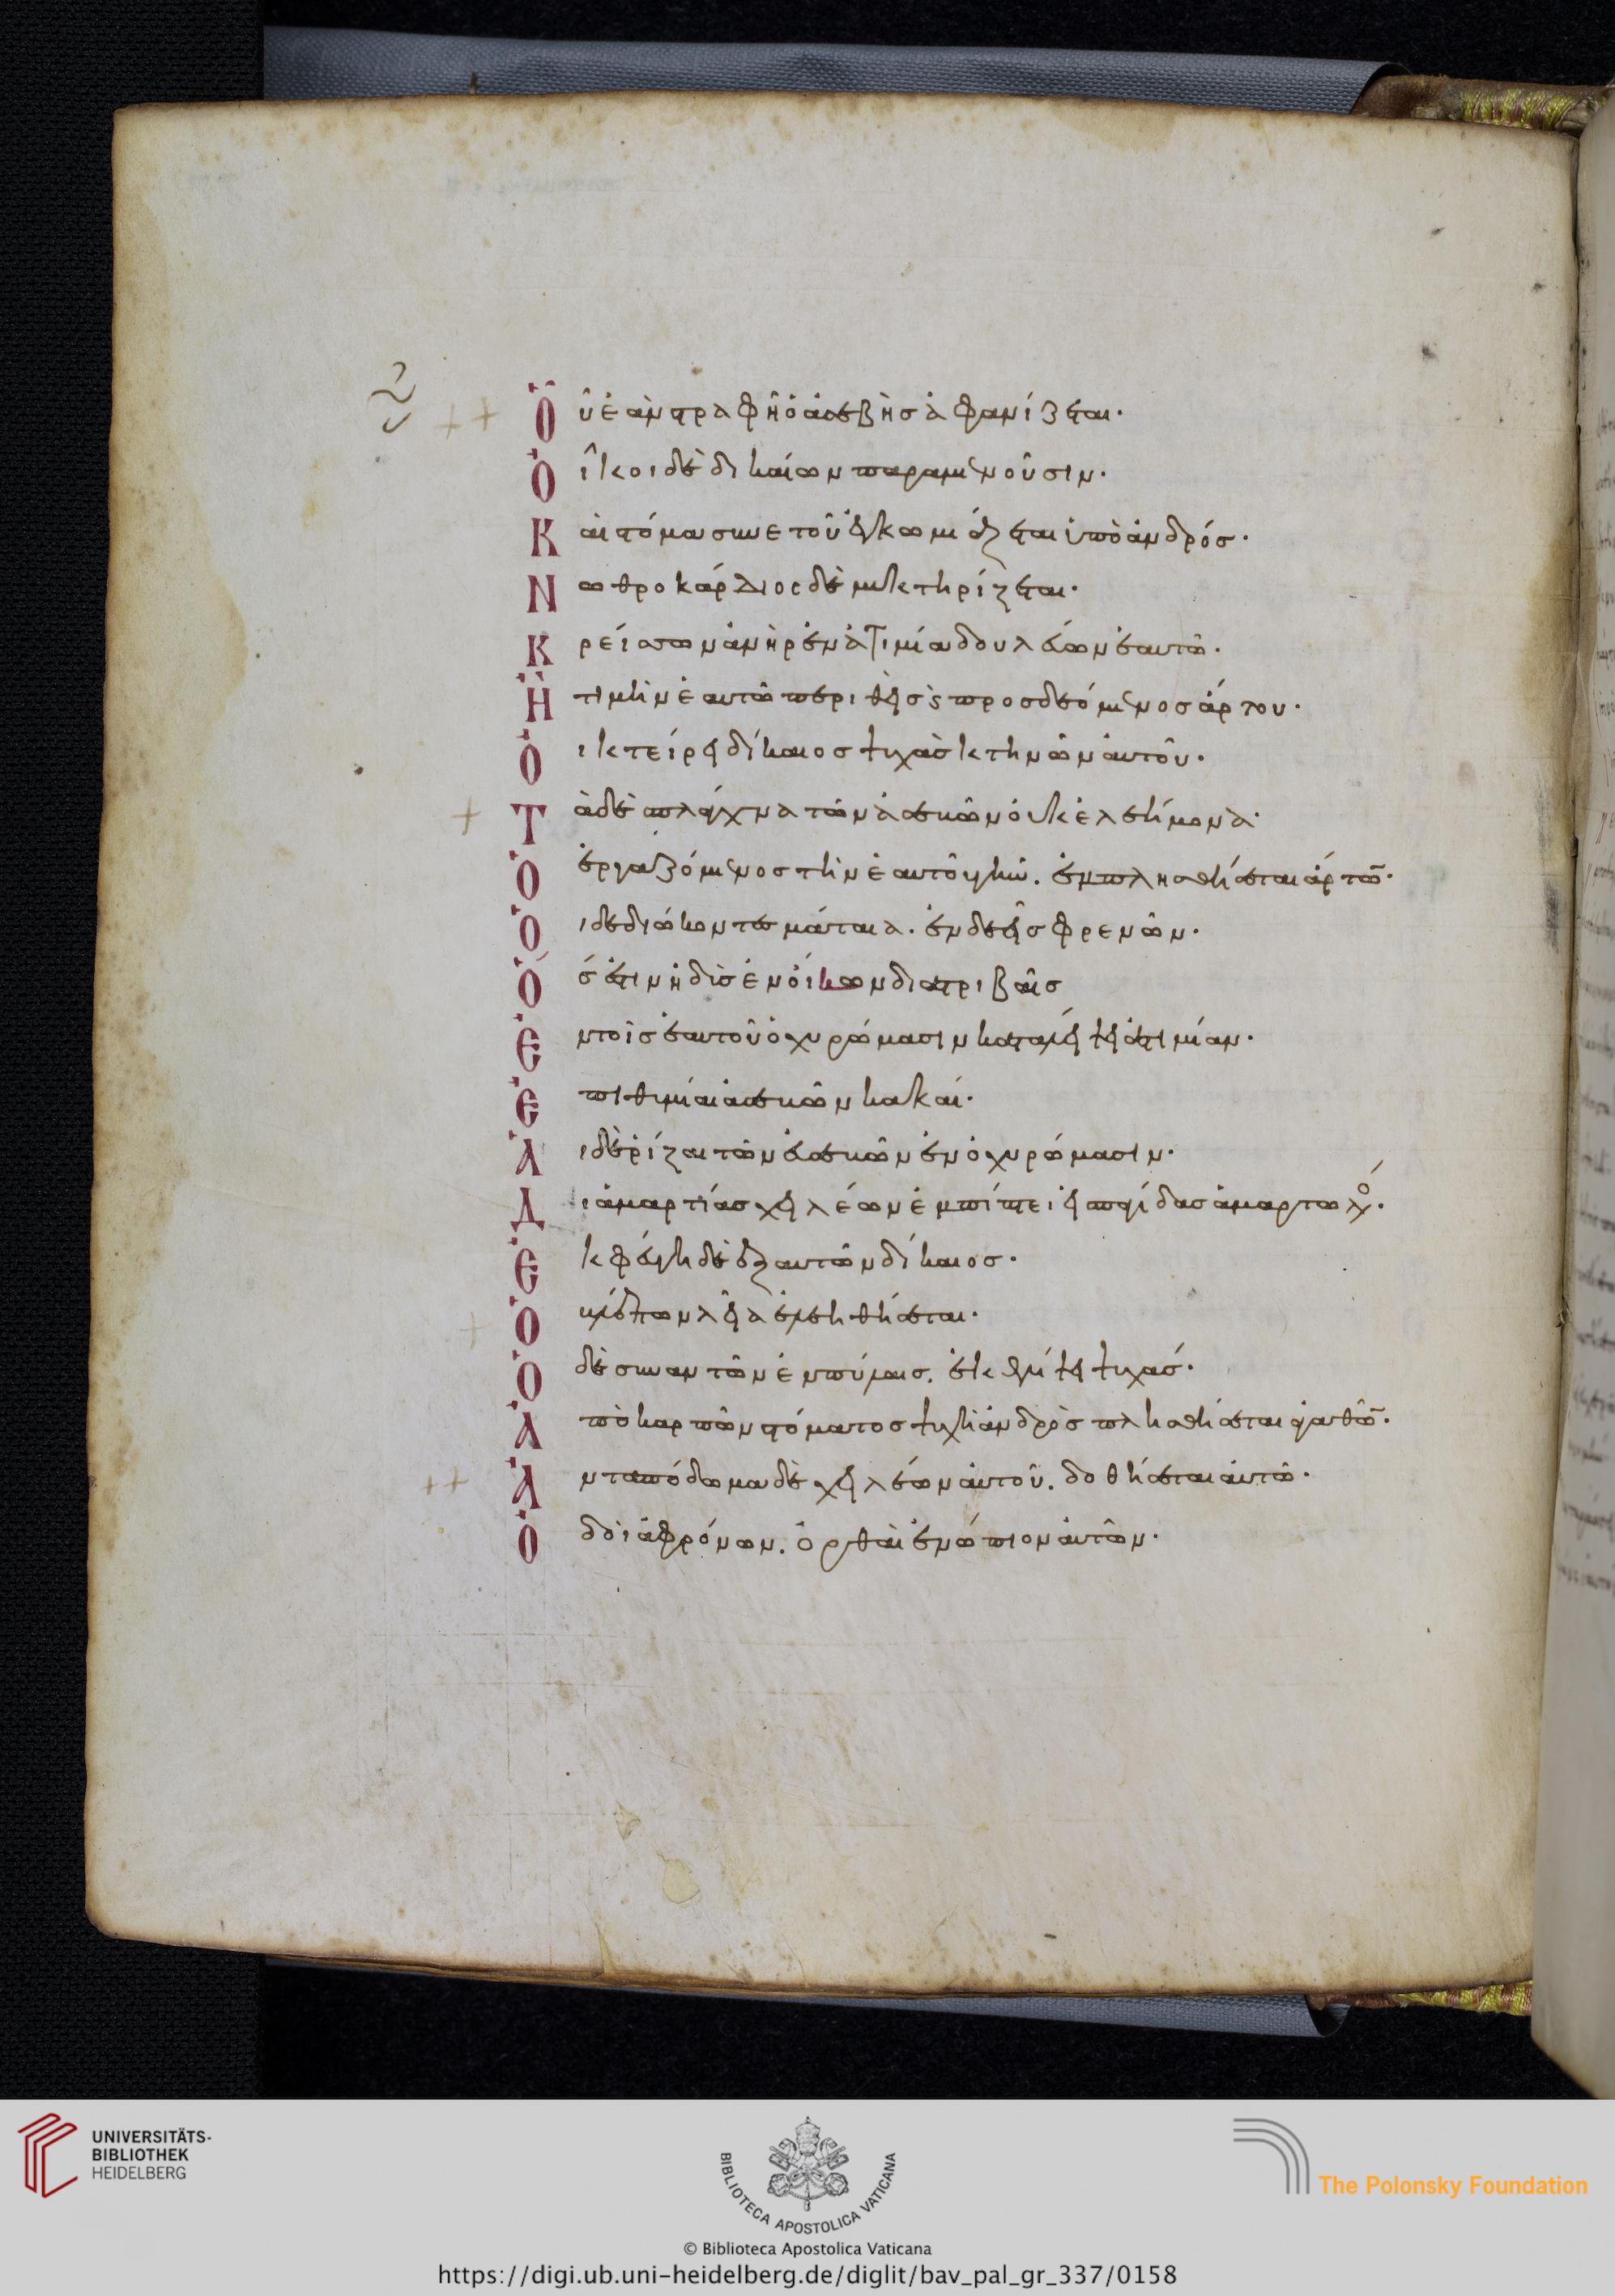 Οὗ ἐὰν στραφῇ ὁ ἀσεβὴς ἀφανίζεται·
Οἶκοι δὲ δικαίων παραμενοῦσιν·
Καὶ στόμα συνετοῦ ἐγκωμιάζεται ὑπὸ ἀνδρός·
Νωθροκάρδιος δὲ μυκτηρίζεται·
Κρείσσων ἀνὴρ ἐν ἀτιμία δουλεύων ἑαυτῶ·
Ἢ τιμὴν ἑαυτῶ περιτιθεὶς ϛ προσδεόμενος ἄρτου·
Οἰκτείρει δίκαιος ψυχὰς κτηνῶν αὐτοῦ·
Τὰ δὲ σπλάγχνα τῶν ἀσεβῶν οὐκ ἐλεήμονα·
Ὁ ἐργαζόμενος τὴν ἑαυτοῦ γῆν. ἐμπλησθήσεται ἄρτων·
Οἱ δὲ διώκοντες μάταια. ἐνδεεῖς φρενῶν·
Ὅς ἐστιν ἡδὺς ἐν οἴκων διατριβαῖς
Ἐν τοῖς ἑαυτοῦ ὀχυρώμασιν καταλείψει ἀτιμίαν·
Ἐπιθυμίαι ἀσεβῶν κακαί·
Αἱ δὲ ῥίζαι τῶν εὐσεβῶν ἐν ὀχυρώμασιν·
Δι ἁμαρτίας χειλέων ἐμπίπτει εἰς παγίδας ἁμαρτωλός·
Ἐκφεύγη δὲ ἐξ αὐτῶν δίκαιος·
Ὁ βλέπων λεῖα ἐλεηθήσεται·
Ὁ δὲ συναντῶν ἐν πύλαις. ἐκθλίψει ψυχάς·
Ἀπὸ καρπῶν στόματος ψυχὴ ἀνδρὸς πλησθήσεται ἀγαθῶν·
Ἀνταπόδωμα δὲ χειλέων αὐτοῦ. δοθήσεται αὐτῶ·
Ὁδοὶ ἀφρόνων. ὀρθαὶ ἐνώπιον αὐτῶν·
UNIVERSITÄTS-
BIBLIOTHEK
HEIDELBERG
BIBLIOTECA APOSTOLICA VATICANA
The Polonsky Foundation
© Biblioteca Apostolica Vaticana
https://digi.ub.uni-heidelberg.de/diglit/bav_pal_gr_337/0158